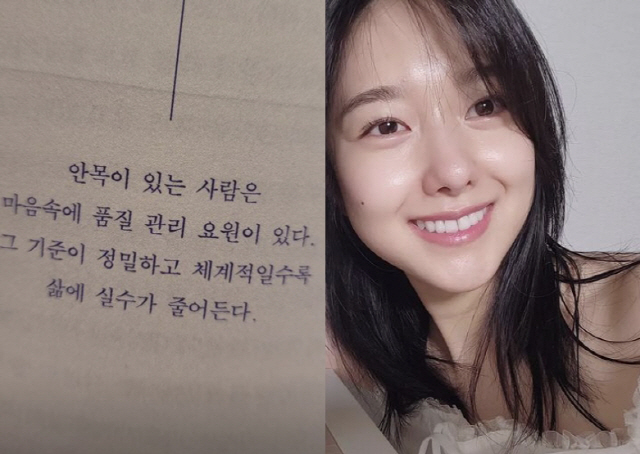 안목이 있는 사람은
마음속에 품질 관리 요원이 있다.
그 기준이 정밀하고 체계적일수록
삶에 실수가 줄어든다.